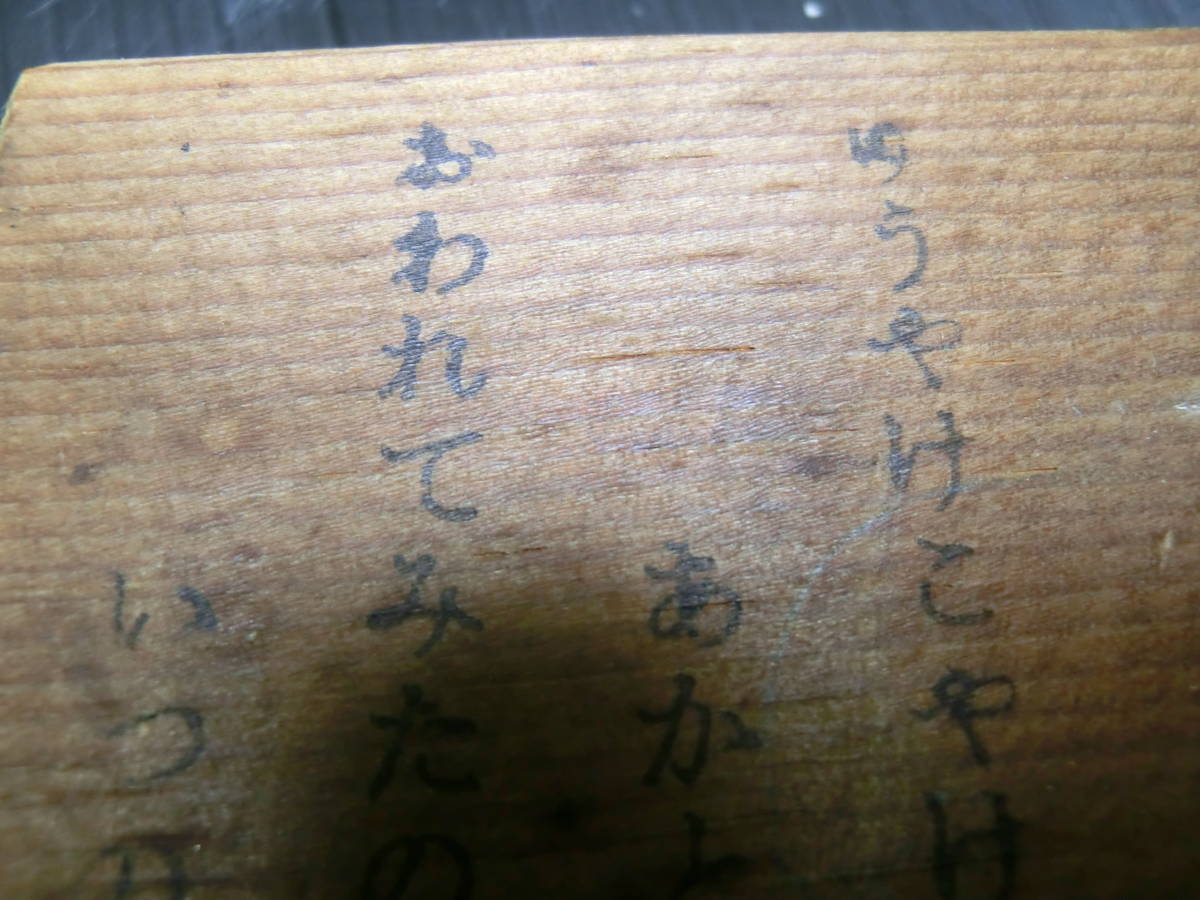 ゆうやけこやけ
あかと
おわれてみたの
いつの